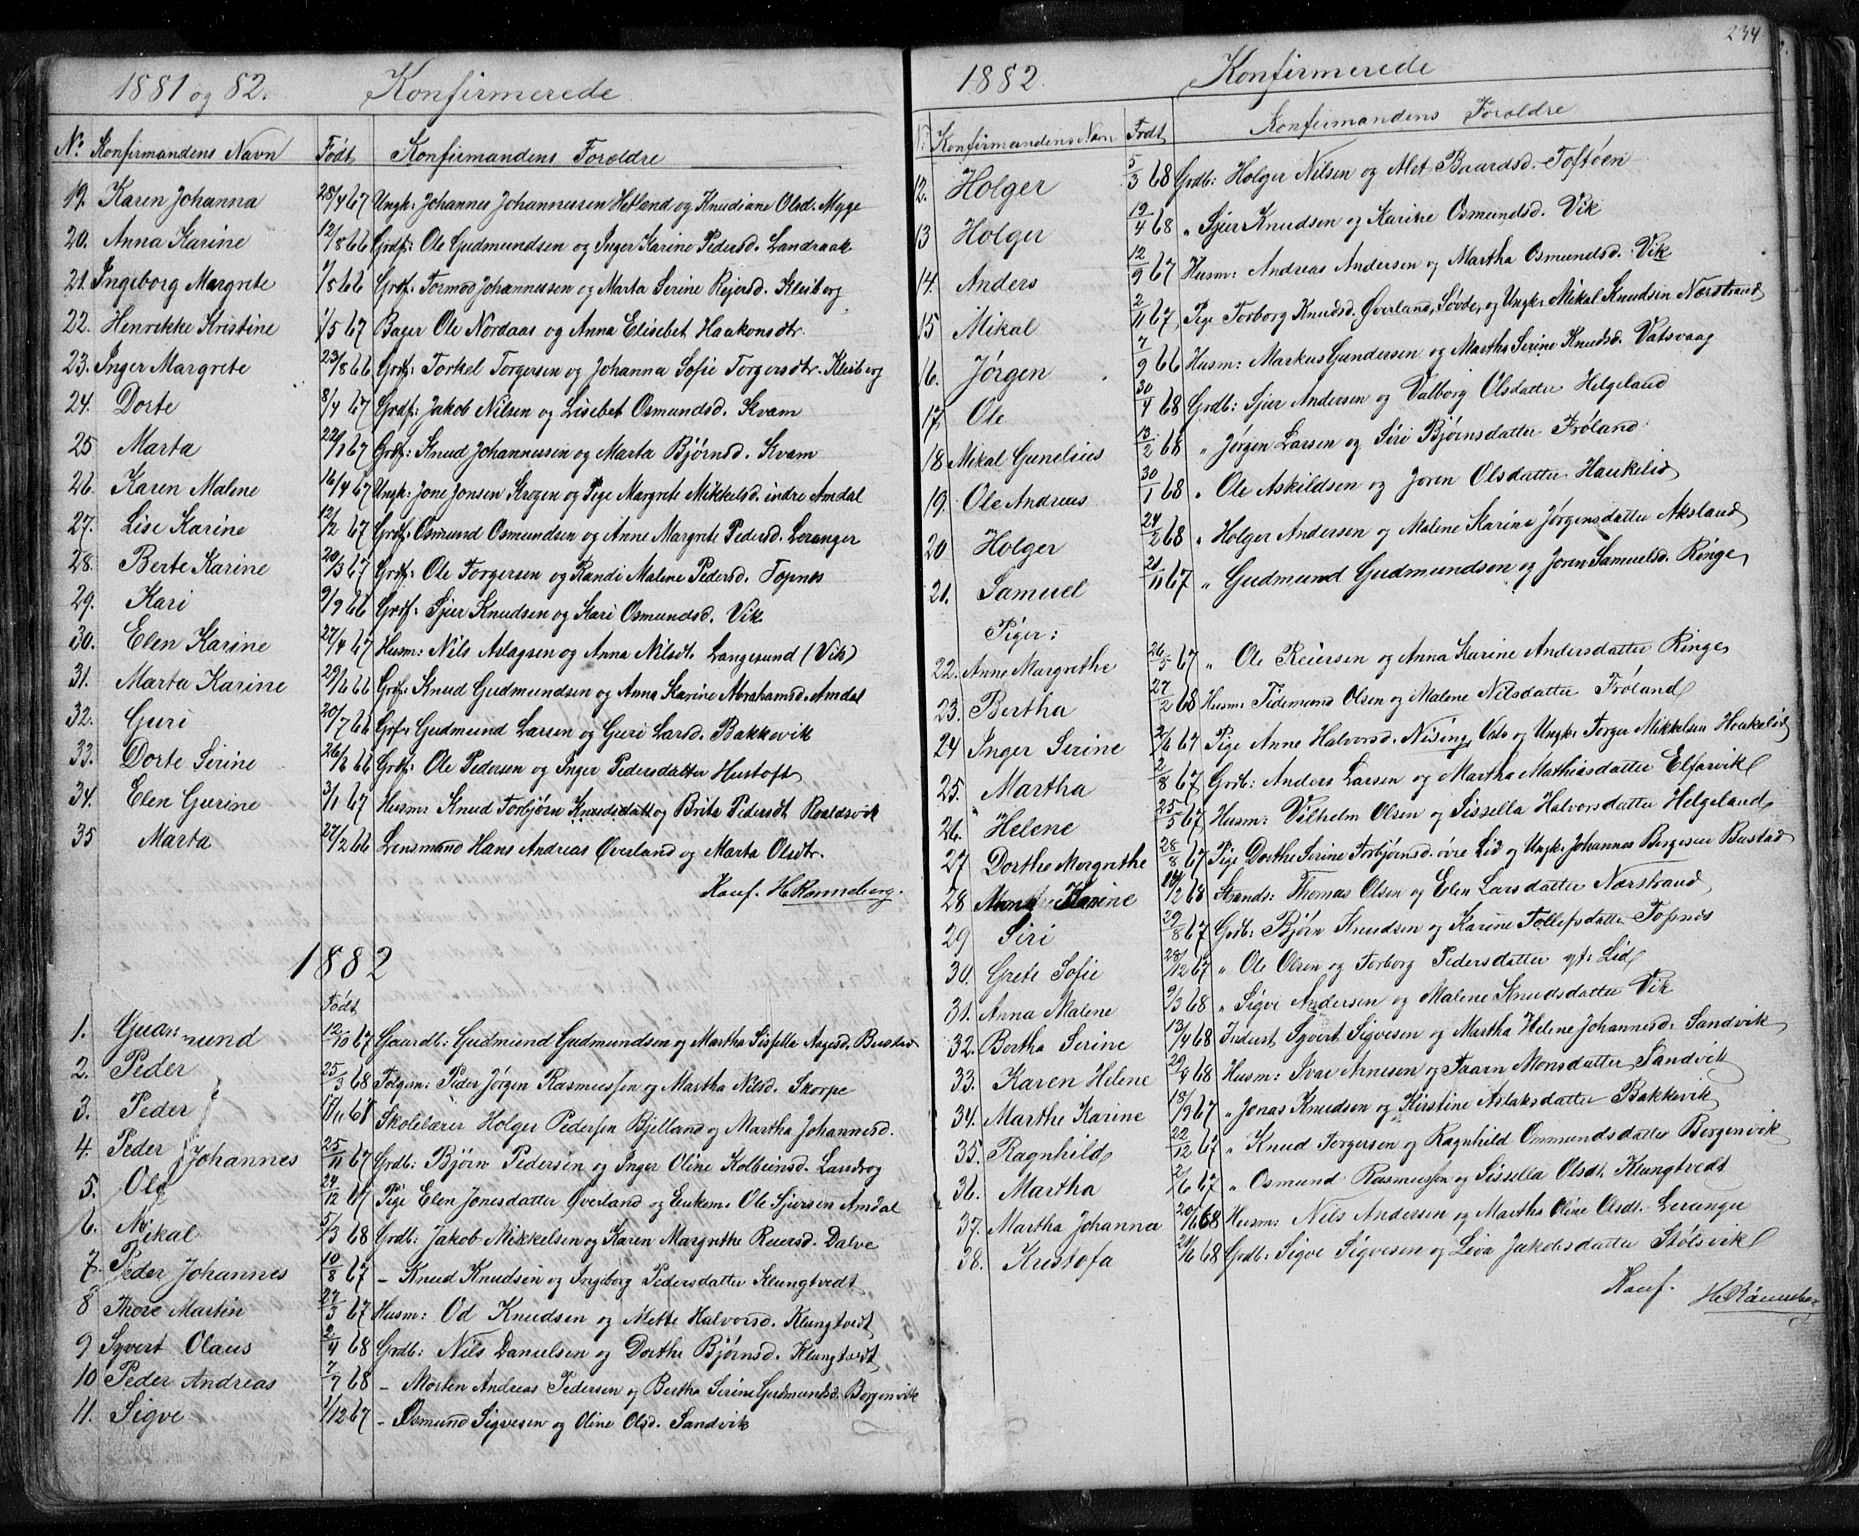 1881 og 82. Konfirmerede
No Konfirmandens Navn Født Konfirmandens Foroldre
19. Karen Johanna 28/4 67 Ungk: Johannes Johannessen Hetland og Knudiane Olsd. Myge
20. Anna Karine 12/8 66 Grdf: Ole Gudmundsen og Inger Karine Pedersd. Landraak
21. Ingeborg Margrete 1/8 66 Grdf: Tormod Johannessen og Marta Serine Rejersd. Kleiberg
22. Henrikke Kristine 1/5 67 Bager Ole Nordaas og Anna Elisebet Haakonsdtr.
23. Inger Margrete 23/8 66 Grdf: Torkel Torgersen og Johanna Sofie Torgersdtr. Kleiberg
24. Dorte 8/4 67 Grdf: Jakob Nilsen og Lisebet Osmundsd. Kvam
25 Marta 22/1 67 Grdf: Knud Johannessen og Marta Bjørnsd. Kvam
26. Karen Malene 16/4 67 Ungk: Jone Jonsen Krogen og Pige Margrete Mikkelsd. indre Amdal
27. Lise Karine 12/2 67 Grdf: Osmund Osmundsen og Anne Margrete Pedersd. Leranger
28. Berte Karine 20/3 67 Grdf: Ole Torgersen og Randi Malene Pedersd. Topnes
29. Kari 9/9 66 Grdf: Sjur Knudsen og Kari Osmundsd. Vik
30. Elen Karine 27/4 67 Husm: Nils Aslagsen og Anna Nilsdt. Langesund (Vik)
31. Marta Karine 29/6 66 Grdf: Knud Gudmundsen og Anna Karine Abrahamsd. Amdal
32. Guri 20/7 66 Grdf: Gudmund Larsen og Guri Larsd. Bakkevik
33. Dorte Serine 26/8 66 Grdf: Ole Pedersen og Inger Pedersdatter Hustoft
34. Elen Gurine 3/1 67 Husm: Knud Torbjørn Knudsdatt og Brita Pedersdt Roaldsvik
35 Marta 27/2 66 Lensmand Hans Andreas Øverland og Marta Olsdtr.
Kauf. H Rønneberg.
1882
Født
1. Gudmund 12/10 67 Gaardb: Gudmund Gudmundsen og Martha Sissella Aagesd. Bustad
2. Peder 25/3 68 Folgem: Peder Jørgen Rasmussen og Martha Nilsd. Skorpe
3. Peder 17/11 67 Skolelærer Holger Pedersen Bjelland og Martha Johannesd.
4. Peder Johannes 25/11 67 Grdb: Bjørn Pedersen og Inger Oline Kolbeinsd. Landvog
5. Ole 24/12 67 Pige Elen Jonesdatter Øverland og Enkem: Ole Sjursen Amdal
6. Mikal 5/3 68 Grdb: Jakob Mikkelsen og Karen Margrethe Reiersd. Dalve
7. Peder Johannes 10/8 67 - Knud Knudsen og Ingeborg Pedersdatter Klungtvedt
8 Thore Martin 27/3 67 Husm: Od Knudsen og Mette Halvorsd. Klungtvedt
9 Syvert Olaus 2/4 68 Grdb: Nils Danielsen og Dorthe Bjørnsd. Klungtvedt
10 Peder Andreas 7/7 68 - Morten Andreas Pedersen og Bertha Serine Gudmundsd. Borgenvik
11. Sigve 1/12 67 - Osmund Sigvesen og Oline Olsd. Sandvik
234
1882. Konfirmerede
N Konfirmandens Navn Født Konfirmandens Foroldre
12. Holger 5/3 68 Grdb: Holger Nilsen og Alet Baardsd. Toftøen
13 Holger 19/4 68 " Sjur Knudsen og Karine Osmundsd. Vik
14. Anders 12/9 67 Husm: Andreas Andersen og Martha Osmundsd. Vik
15 Mikal 2/11 67 Pige Torborg Knudsd. Øverland, Søvde, og Ungk: Mikal Knudsen Nærstrand
16. Jørgen 7/9 66 Husm: Markus Gundersen og Martha Serine Knudsd. Vatsvaag
17. Ole 30/4 68 Grdb: Sjur Andersen og Valborg Olsdatter Helgeland
18 Mikal Gunelius 13/2 68 " Jørgen Larsen og Siri Bjørnsdatter Frøland
19. Ole Andreas 30/1 68 " Ole Askildsen og Joren Olsdatter Haukelid
20 Holger 24/2 68 " Holger Andersen og Malene Karine Jørgensdatter Aksland
21. Samuel 21/11 67 " Gudmund Gudmundsen og Joren Samuelsd. Ringe
Piger:
22. Anne Margrethe 26/5 67 " Ole Reiersen og Anna Karine Andersdatter Ringe
23. Bertha 27/2 68 Husm: Tidemand Olsen og Malene Nilsdatter Frøland
24 Inger Serine 2/6 67 Pige Anne Halvorsd. Nising, Vats og Ungk: Torger Mikkelsen Haukelid
25. Martha 2/8 67 Grdb: Anders Larsen og Martha Mathiasdatter Elfarvik
26. Helene 25/5 67 Husm: Vilhelm Olsen og Sissella Halvorsdatter Helgeland
27 Dorthe Morgrethe 28/8 67 Pige Dorthe Serine Torbjørnsd. øvre Lid og Ungk: Johannes Børgesen Bustad
28 Anna Karine 14/2 68 Strands: Thomas Olsen og Elen Larsdatter Nærstrand
29 Siri 29/8 67 Grdb: Bjørn Knudsen og Karine Tollefsdatter Topnes
30. Grete Sofie 28/12 67 " Ole Olsen og Torborg Pedersdatter yt: Lid
31. Anna Malene 9/3 68 " Sigve Andersen og Malene Knudsdatter Vik
32. Bertha Serine 13/4 68 Inderst Syvert Sigvesen og Martha Helene Johannesd. Sandvik
33. Karen Helene 29/4 68 Husm: Ivar Arnesen og Taarn Monsdatter Sandvik
34. Marthe Karine 18/9 67 " Jonas Knudsen og Kirstine Aslaksdatter Bakkevik
35. Ragnhild 22/12 67 " Knud Torgersen og Ragnhild Ommundsdatter Borgenvik
36. Martha 2/6 67 " Osmund Rasmussen og Sissella Olsdt. Klungtvedt
37. Martha Johanna 20/6 68 Husm: Nils Andersen og Martha Oline Olsdt. Leranger
38. Kristofa 21/6 68 Grdb: Sigve Sigvesen og Liva Jakobsdatter Stølsvik
Kauf. H Rønneberg